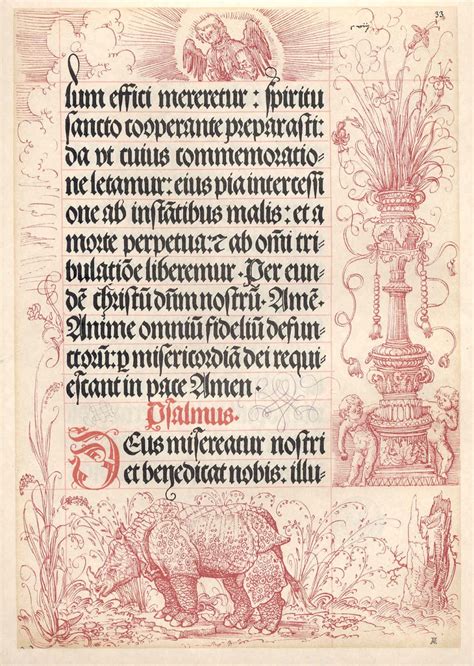 33
lum effici mereretur : spiritu
sancto cooperante preparasti:
da vt cuius commemoratio-
ne letamur: eius pia intercessi
one ab instãtibus malis: et a
morte perpetua: ⁊ ab om̃i tri-
bulatiõe liberemur. Per eun-
dẽ christũ dũm nostrũ. Amẽ.
Anime omniũ fideliũ defun-
ctorũ: ꝑ misericordiã dei requi-
escant in pace Amen.
Psalmus.
Deus misereatur nostri
et benedicat nobis: illu-